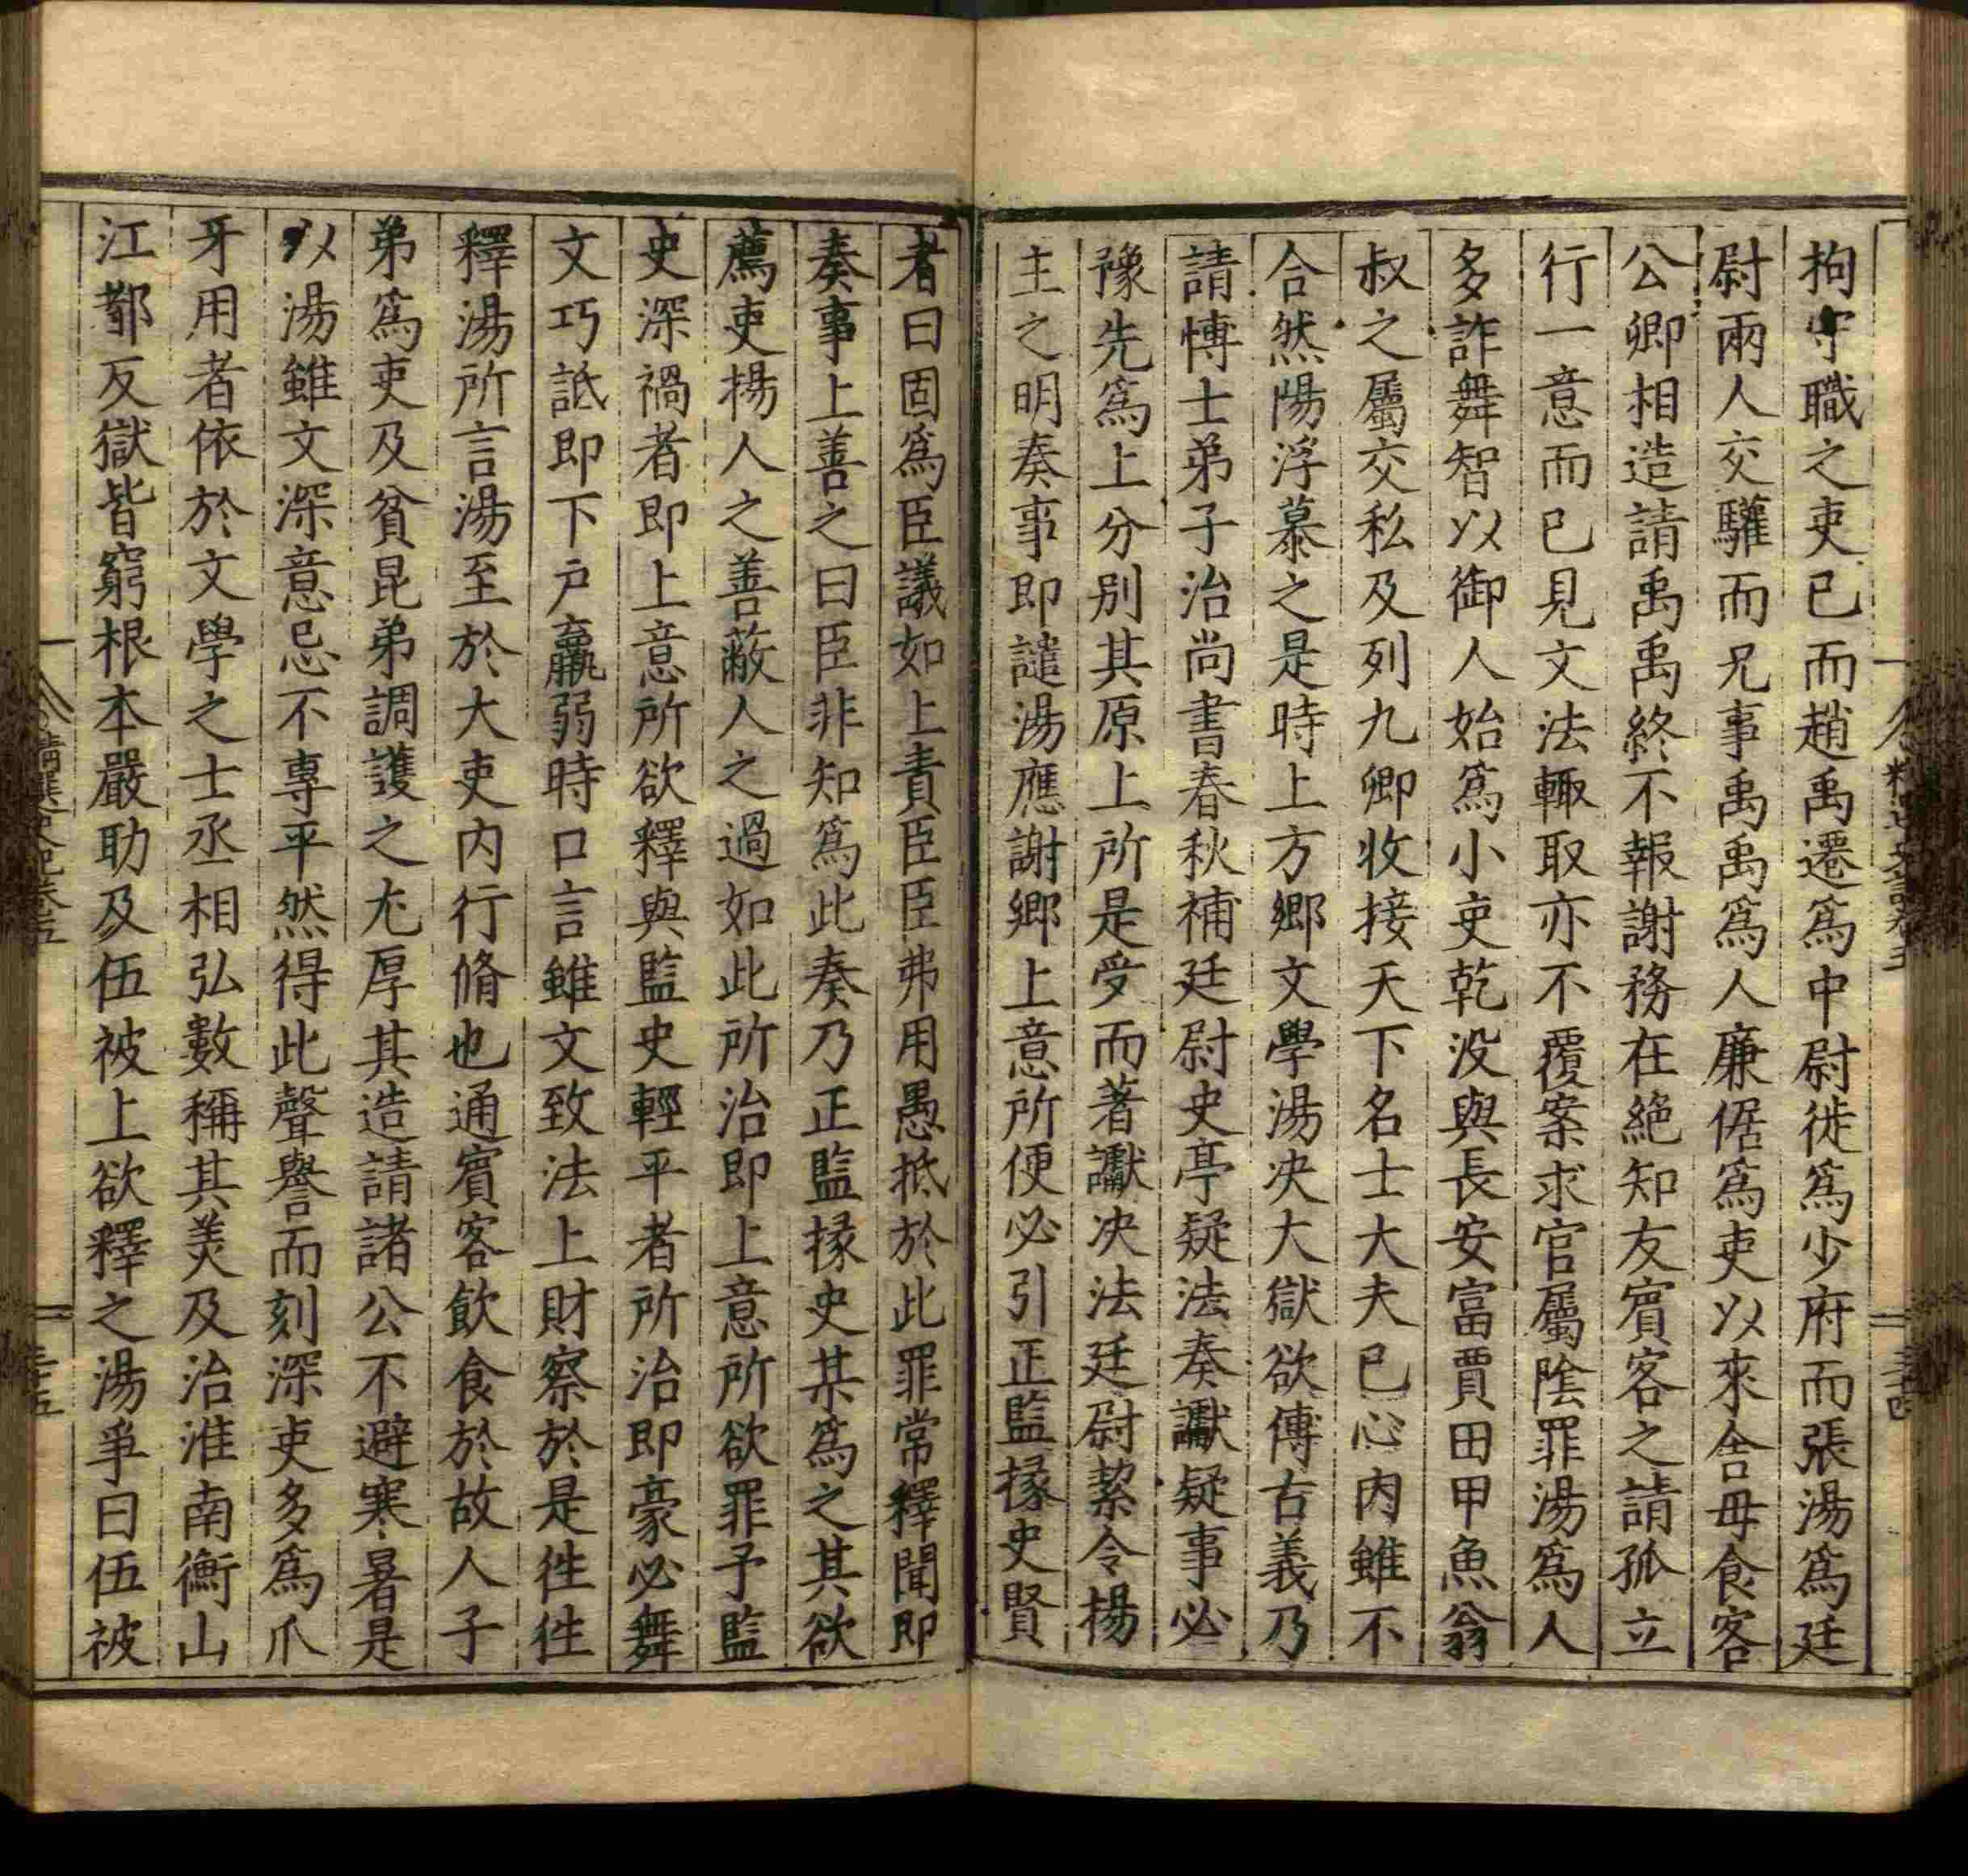 拘守職之吏已而趙禹遷爲中尉徙爲少府而張湯爲廷
尉兩人交驩而兄事禹禹爲人廉倨爲吏以來舍毋食客
公卿相造請禹禹終不報謝務在絶知友賓客之請孤立
行一意而已見文法輙取亦不覆案求官屬隂罪湯爲人
多詐舞智以御人始爲小吏乾没與長安富賈田甲魚翁
叔之屬交私及列九卿收接天下名士大夫已心内雖不
合然陽浮慕之是時上方鄉文學湯决大獄欲傅古義乃
請愽士弟子治尚書春秋補廷尉史亭疑法奏讞疑事必
豫先爲上分别其原上所是受而著讞决法廷尉絜令楊
主之明奏事即譴湯應謝鄉上意所便必引正監掾史賢
者曰固爲臣議如上責臣臣弗用愚抵於此罪常釋聞即
奏事上善之曰臣非知爲此奏乃正監掾史某爲之其欲
薦吏楊人之善蔽人之過如此所治即上意所欲罪予監
史深禍者即上意所欲釋與監史輕平者所治即豪必舞
文巧詆即下户羸弱時口言雖文致法上財察於是徃徃
釋湯所言湯至於大吏内行脩也通賓客飲食於故人子
弟爲吏及貧昆弟調護之尤厚其造請諸公不避寒暑是
以湯雖文深意忌不專平然得此聲譽而刻深吏多爲爪
牙用者依於文學之士丞相弘數稱其羙及治淮南衡山
江都反獄皆窮根本嚴助及伍被上欲釋之湯爭曰伍被